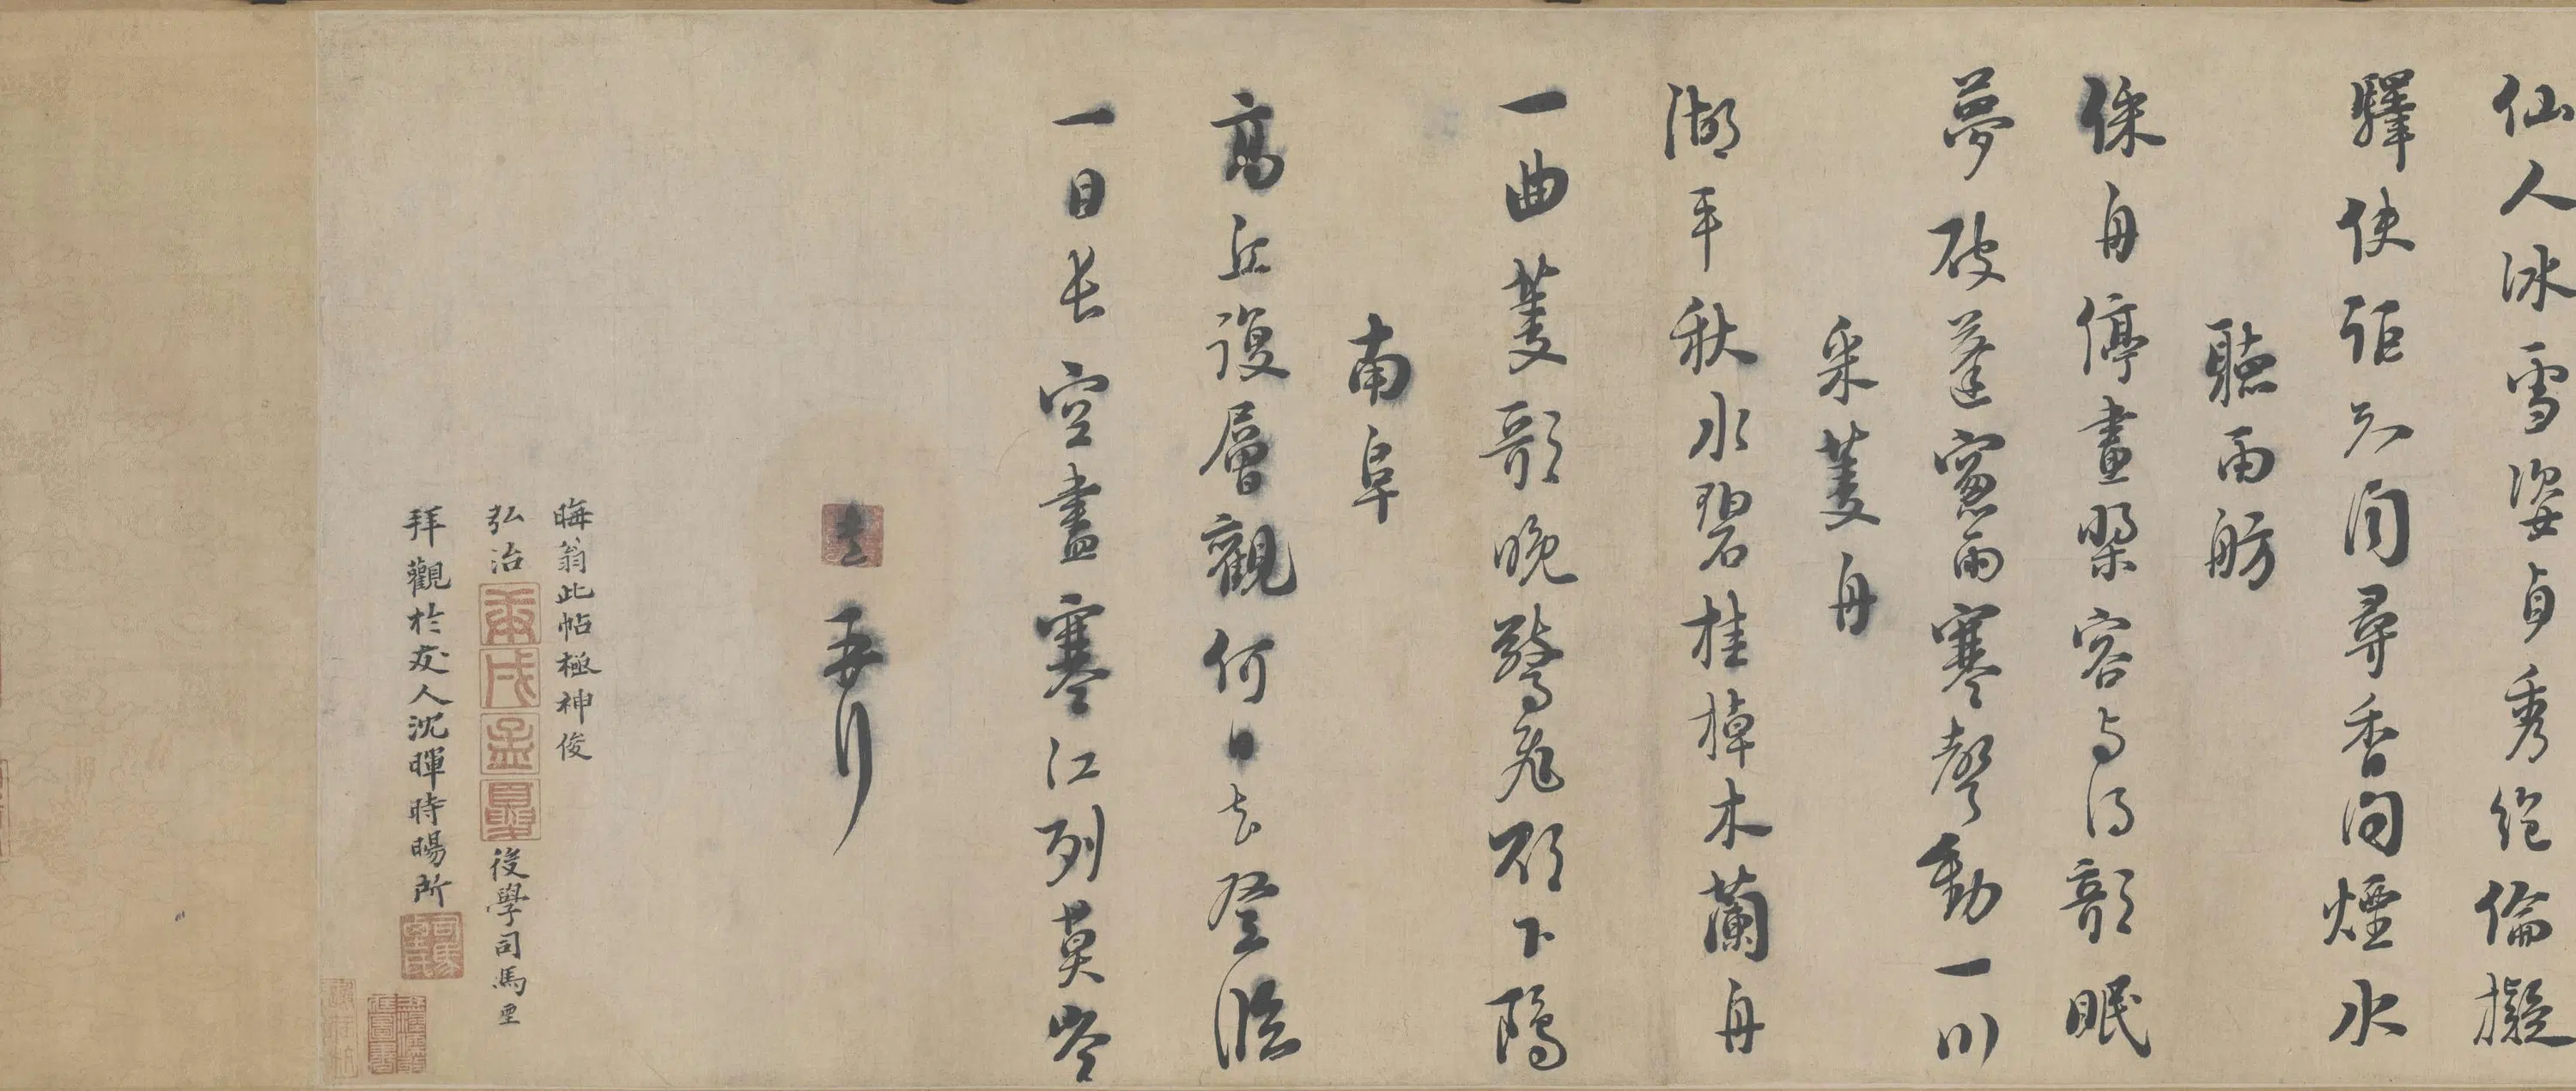 仙人冰雪姿貞秀絕倫擬
驛使詎知聞尋香問煙水
聽雨舫
綵舟停畫槳容与得欹眠
夢破蓬窻雨寒聲動一川
采菱舟
湖平秋水碧桂棹木蘭舟
一曲菱歌晚驚飛欲下鷗
南阜
高丘復層觀何日去登臨
一目長空盡寒江列莫岑
熹再拜
晦翁此帖極神俊
弘治庚戌孟夏後學司馬垔
拜觀於友人沈暉時暘所